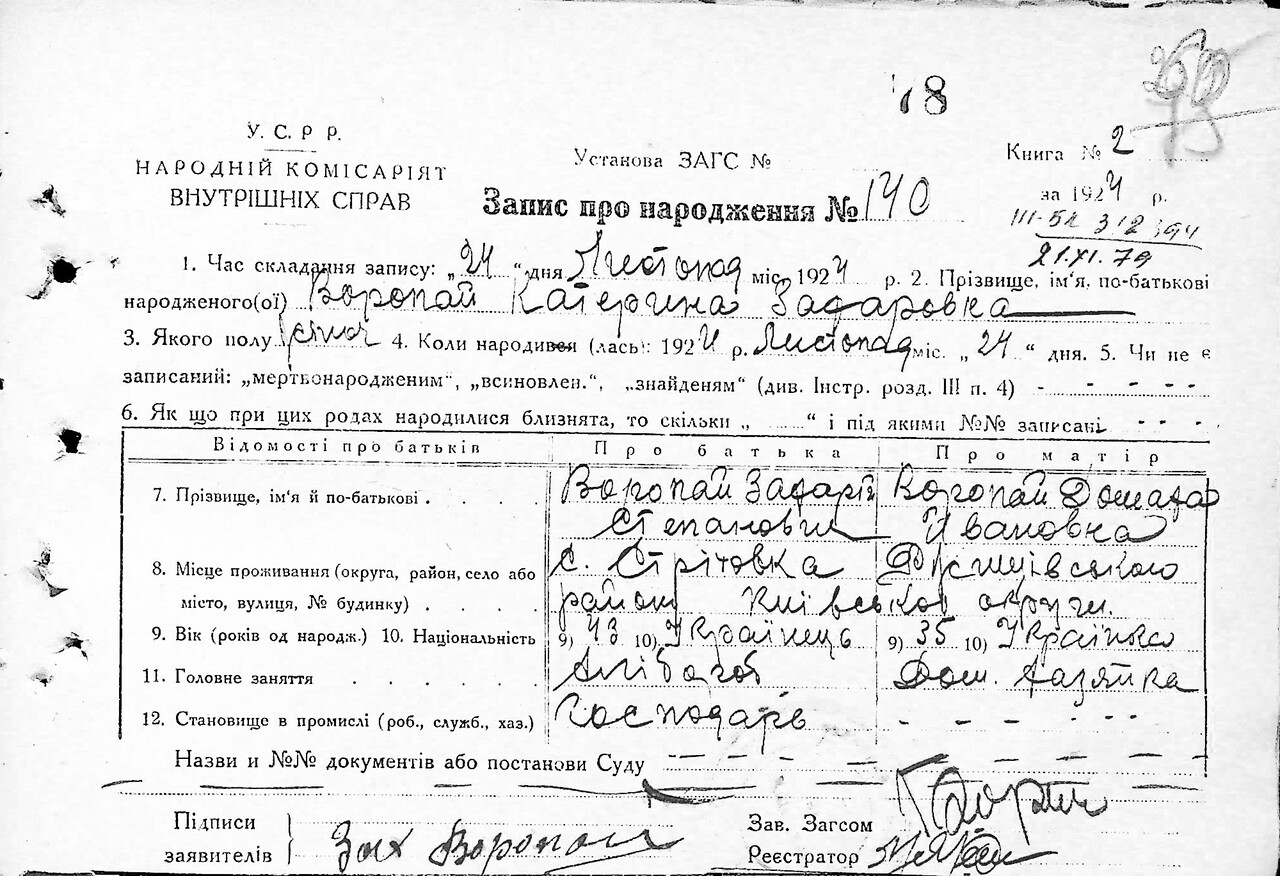 78
У. С. Р Р.
НАРОДНІЙ КОМІСАРІЯТ
ВНУТРІШНІХ СПРАВ
Установа ЗАГС №
Книга № 2
за 1924 р.
Запис про народження № 140
21.XI.79
1. Час складання запису: „24“ дня Листопад міс. 1924 р. 2. Прізвище, ім'я, по-батькові
народженого(ої) Воропай Катерина Захаровка
3. Якого полу жіноч 4. Коли народився (лась): 1924 р. Листопад міс. „24“ дня. 5. Чи не є
записаний: „мертвонародженим“, „всиновлен.“, „знайденям“ (див. Інстр. розд. III п. 4) - - - - -
6. Як що при цих родах народилися близнята, то скільки „ ........“ і під якими №№ записані - - -
Відомості про батьків Про батька Про матір
7. Прізвище, ім'я й по-батькові . . . . Воропай Захарій Воропай Домаха
Степанович Ивановна
8. Місце проживання (округа, район, село або с. Стрітовка Ржищівського
місто, вулиця, № будинку) . . . . району Київської округи.
9. Вік (років од народж.) 10. Національність 9) 43 10) Українець 9) 35 10) Українка
11. Головне заняття . . . . . Хлібороб Дом. хазяйка
12. Становище в промислі (роб., служб., хаз.) Господарь - - - - - -
Назви и №№ документів або постанови Суду — — — — — —
Підписи
заявителів Зах Воропай
Зав. Загсом
Реєстратор